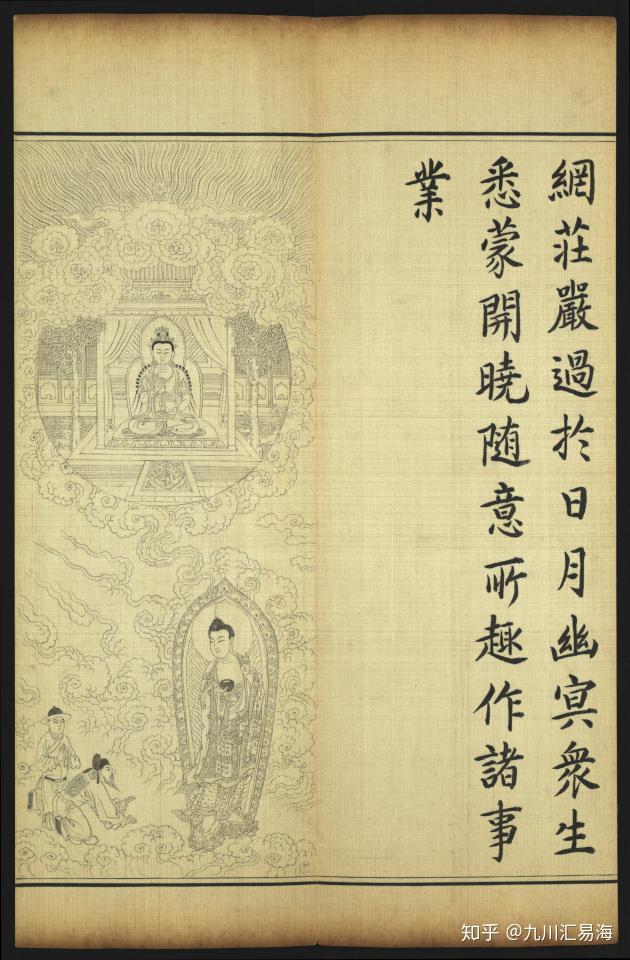 網莊嚴過於日月幽冥衆生
悉蒙開曉随意所趣作諸事
業
知乎 @九川汇易海